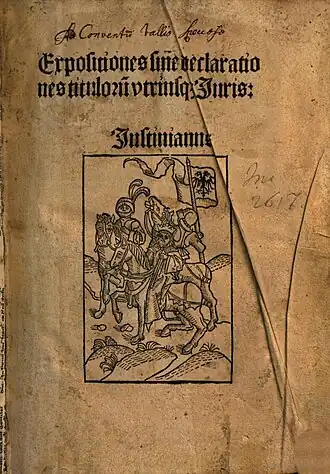 Conventus Vallis
Expositiones siue declaratio
nes titulorũ vtriusqȝ Juris:
Justinianus
Inc
2617.